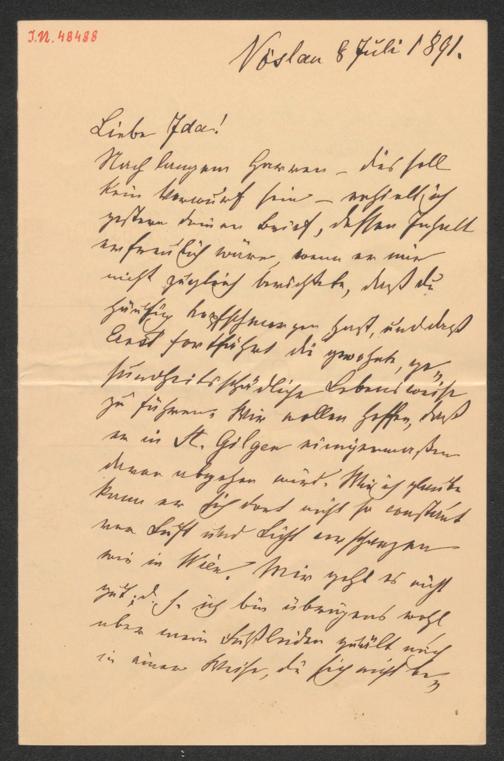 I.N. 48488
Vöslau 8 Juli 1891.
Liebe Ida!
Nach langem Harren – dies soll
kein Vorwurf sein – erhielt ich
gestern deinen Brief, dessen Inhalt
erfreulich wäre, wenn er mir
nicht zugleich berichtete, daß du
häufig Kopfschmerzen hast, und daß
Ernst fortfährt die gewohnte, ge„
sundheitsschädliche Lebensweise
zu führen. Wir wollen hoffen, daß
er in St. Gilgen einigermaßen
davon abgehen wird. Wie ich glaube
kann er sich dort nicht so constant
vor Luft und Licht verschanzen
wie in Wien. Mir geht es nicht
gut; d. h. ich bin übrigens wohl
aber mein Fußleiden quält mich
in einer Weise, die sich nicht be„